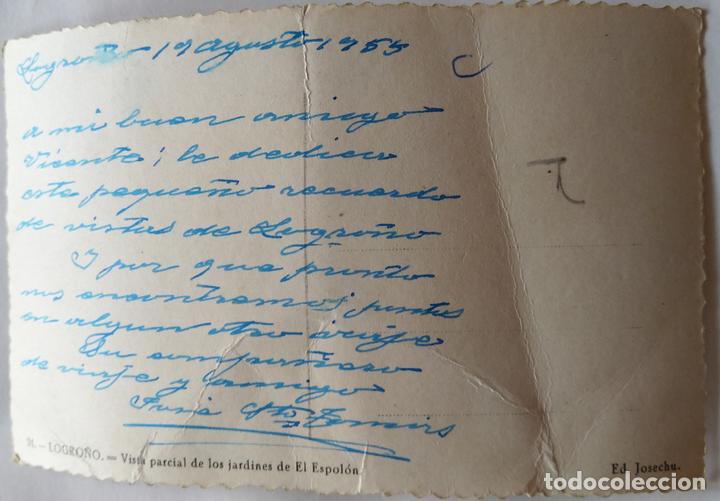 Logroño 19 agosto 1955
a mi buen amigo
Vicente; le dedico
este pequeño recuerdo
de vistas de Logroño
Y por que pronto
nos encontremos juntos
en algun otro viaje
Su compañero
de viaje y amigo
Sto
LOGROÑO. — Vista parcial de los jardines de El Espolón
Ed. Josechu.
todocoleccion